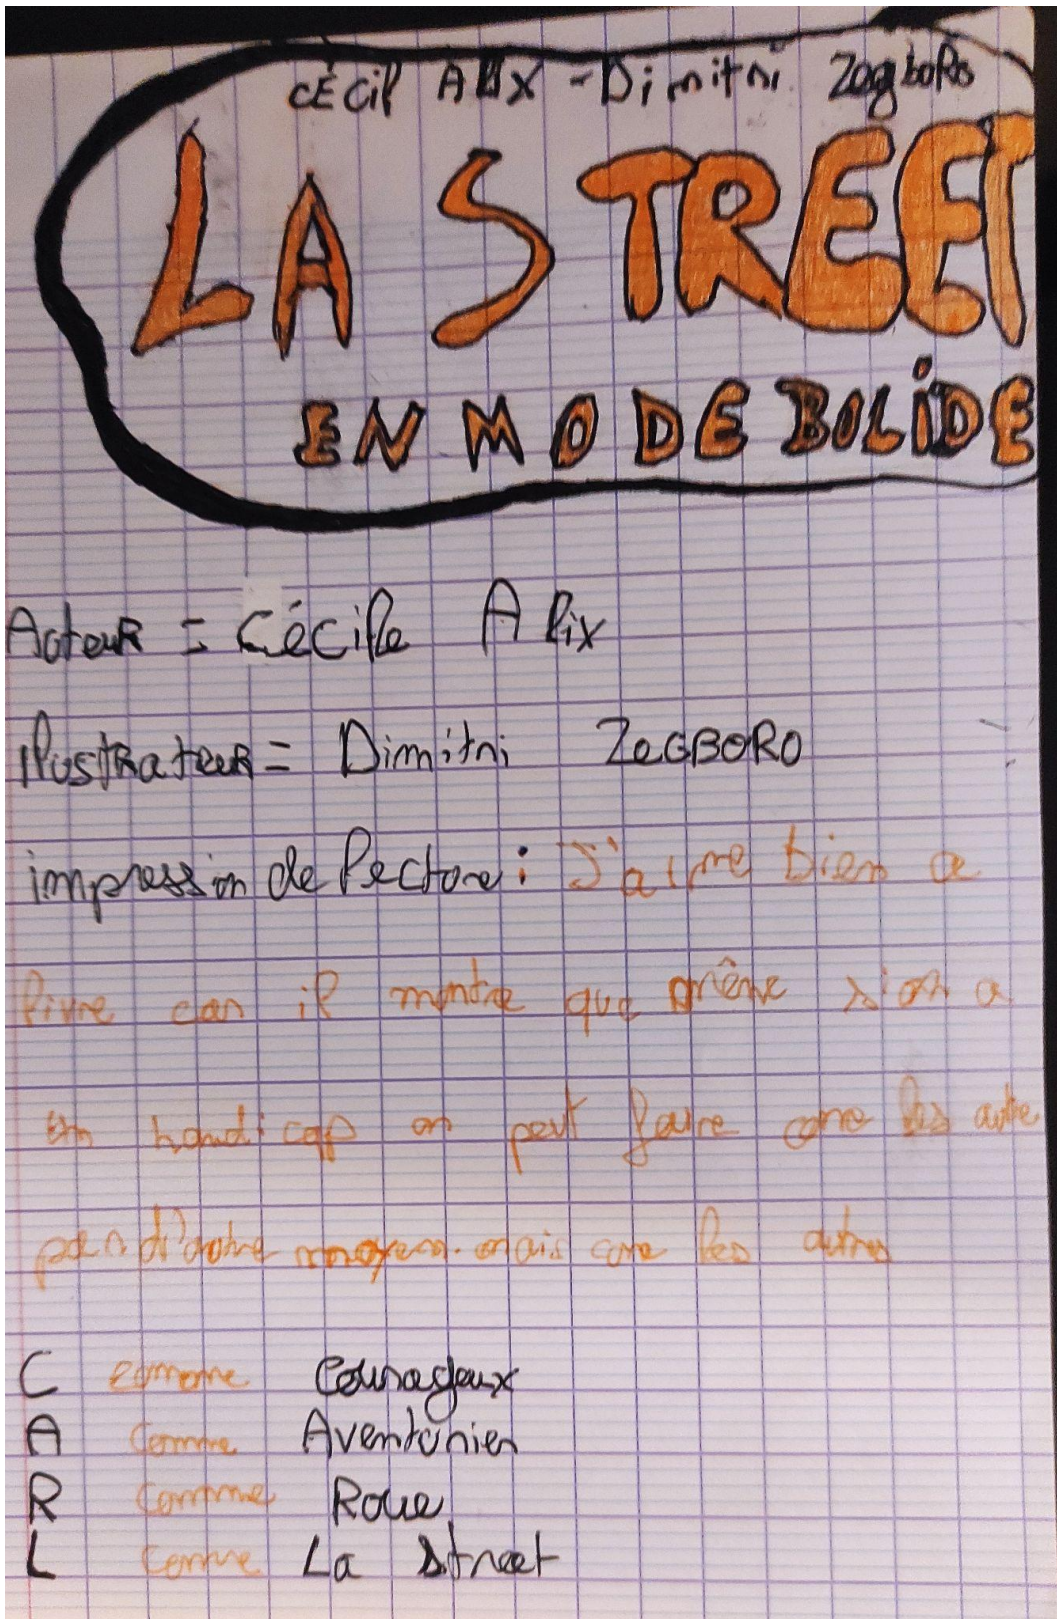 CÉCil Alix - Dimitri Zogboro
LA STREET
EN MODE BOLiDE
Acteur = Cécile Alix
ilustrateur = Dimitri ZeGBORO
impression de lecture : J'aime bien ce
livre car il montre que même s'on a
un handicap on peut faire come les autre
par d'autre moyen. mais come les autres
C comme Courageux
A comme Aventurier
R comme Roue
L comme La Street